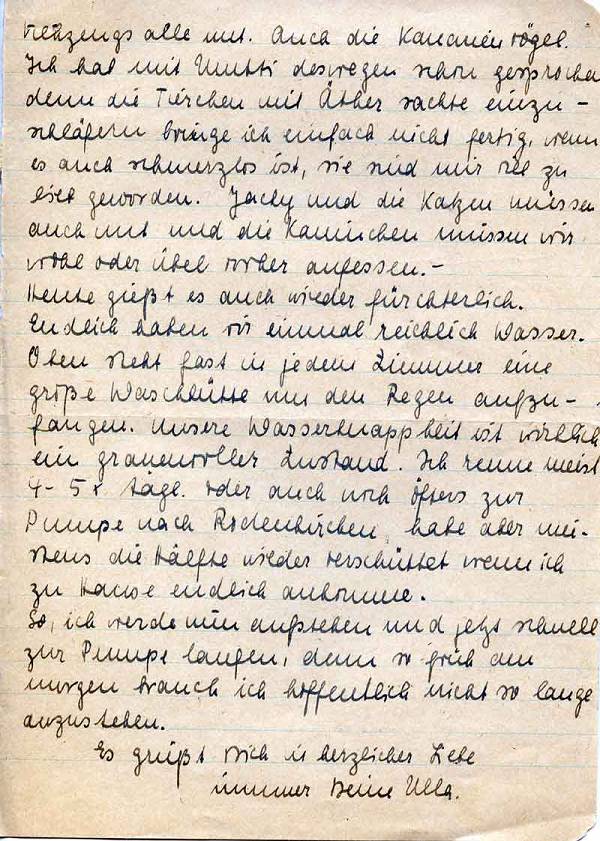 alle mit. Auch die Kanarienvögel.
Ich hab mit Mutti deswegen schon gesprochen
denn die Tierchen mit Äther sachte einzu-
schläfern bringe ich einfach nicht fertig, wenn
es auch schmerzlos ist, sie sind mir viel zu
lieb geworden. Jacky und die Katzen müssen
auch mit und die Kaninchen müssen wir
wohl oder übel vorher aufessen.-
Heute gießt es auch wieder fürchterlich.
Endlich haben wir einmal reichlich Wasser.
Oben steht fast in jedem Zimmer eine
große Waschbütte um den Regen aufzu-
fangen. Unsere Wasserknappheit ist wirklich
ein grauenvoller Zustand. Ich renne meist
4-5x tägl. oder auch noch öfters zur
Pumpe nach Rodenkirchen, habe aber mei-
stens die Hälfte wieder verschüttet wenn ich
zu Hause endlich ankomme.
So, ich werde nun aufstehen und jetzt schnell
zur Pumpe laufen, denn so früh am
morgen brauch ich hoffentlich nicht so lange
anzustehen.
Es grüßt Dich in herzlicher Liebe
immer Deine Ulla.